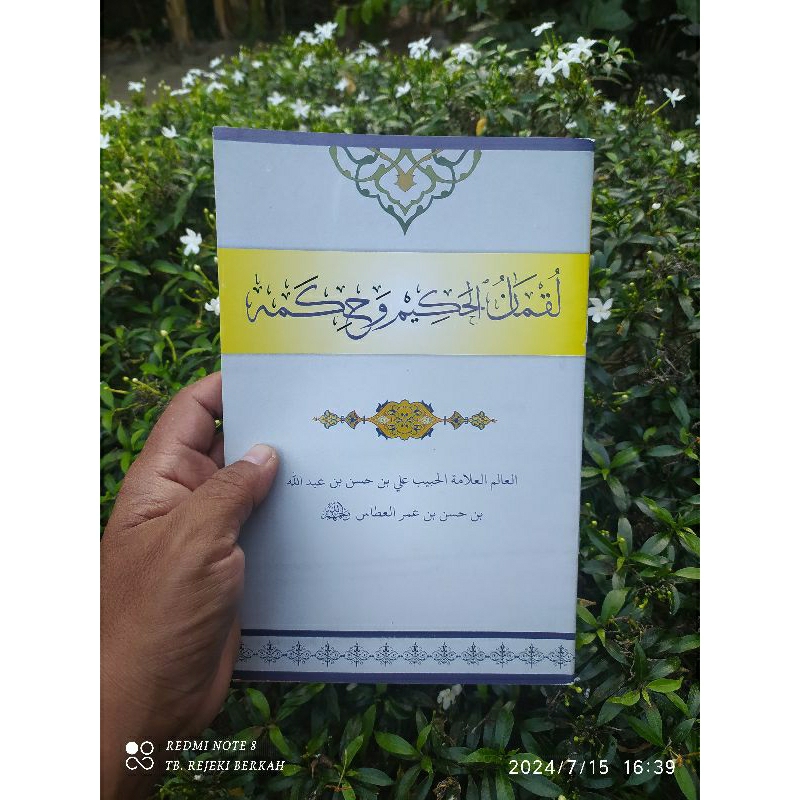 لُقْمَانُ الْحَكِيْمُ وَحِكَمُهُ
العالم العلامة الحبيب علي بن حسن بن عبد الله
بن حسن بن عمر العطاس
REDMI NOTE 8
TB. REJEKI BERKAH
2024/7/15 16:39